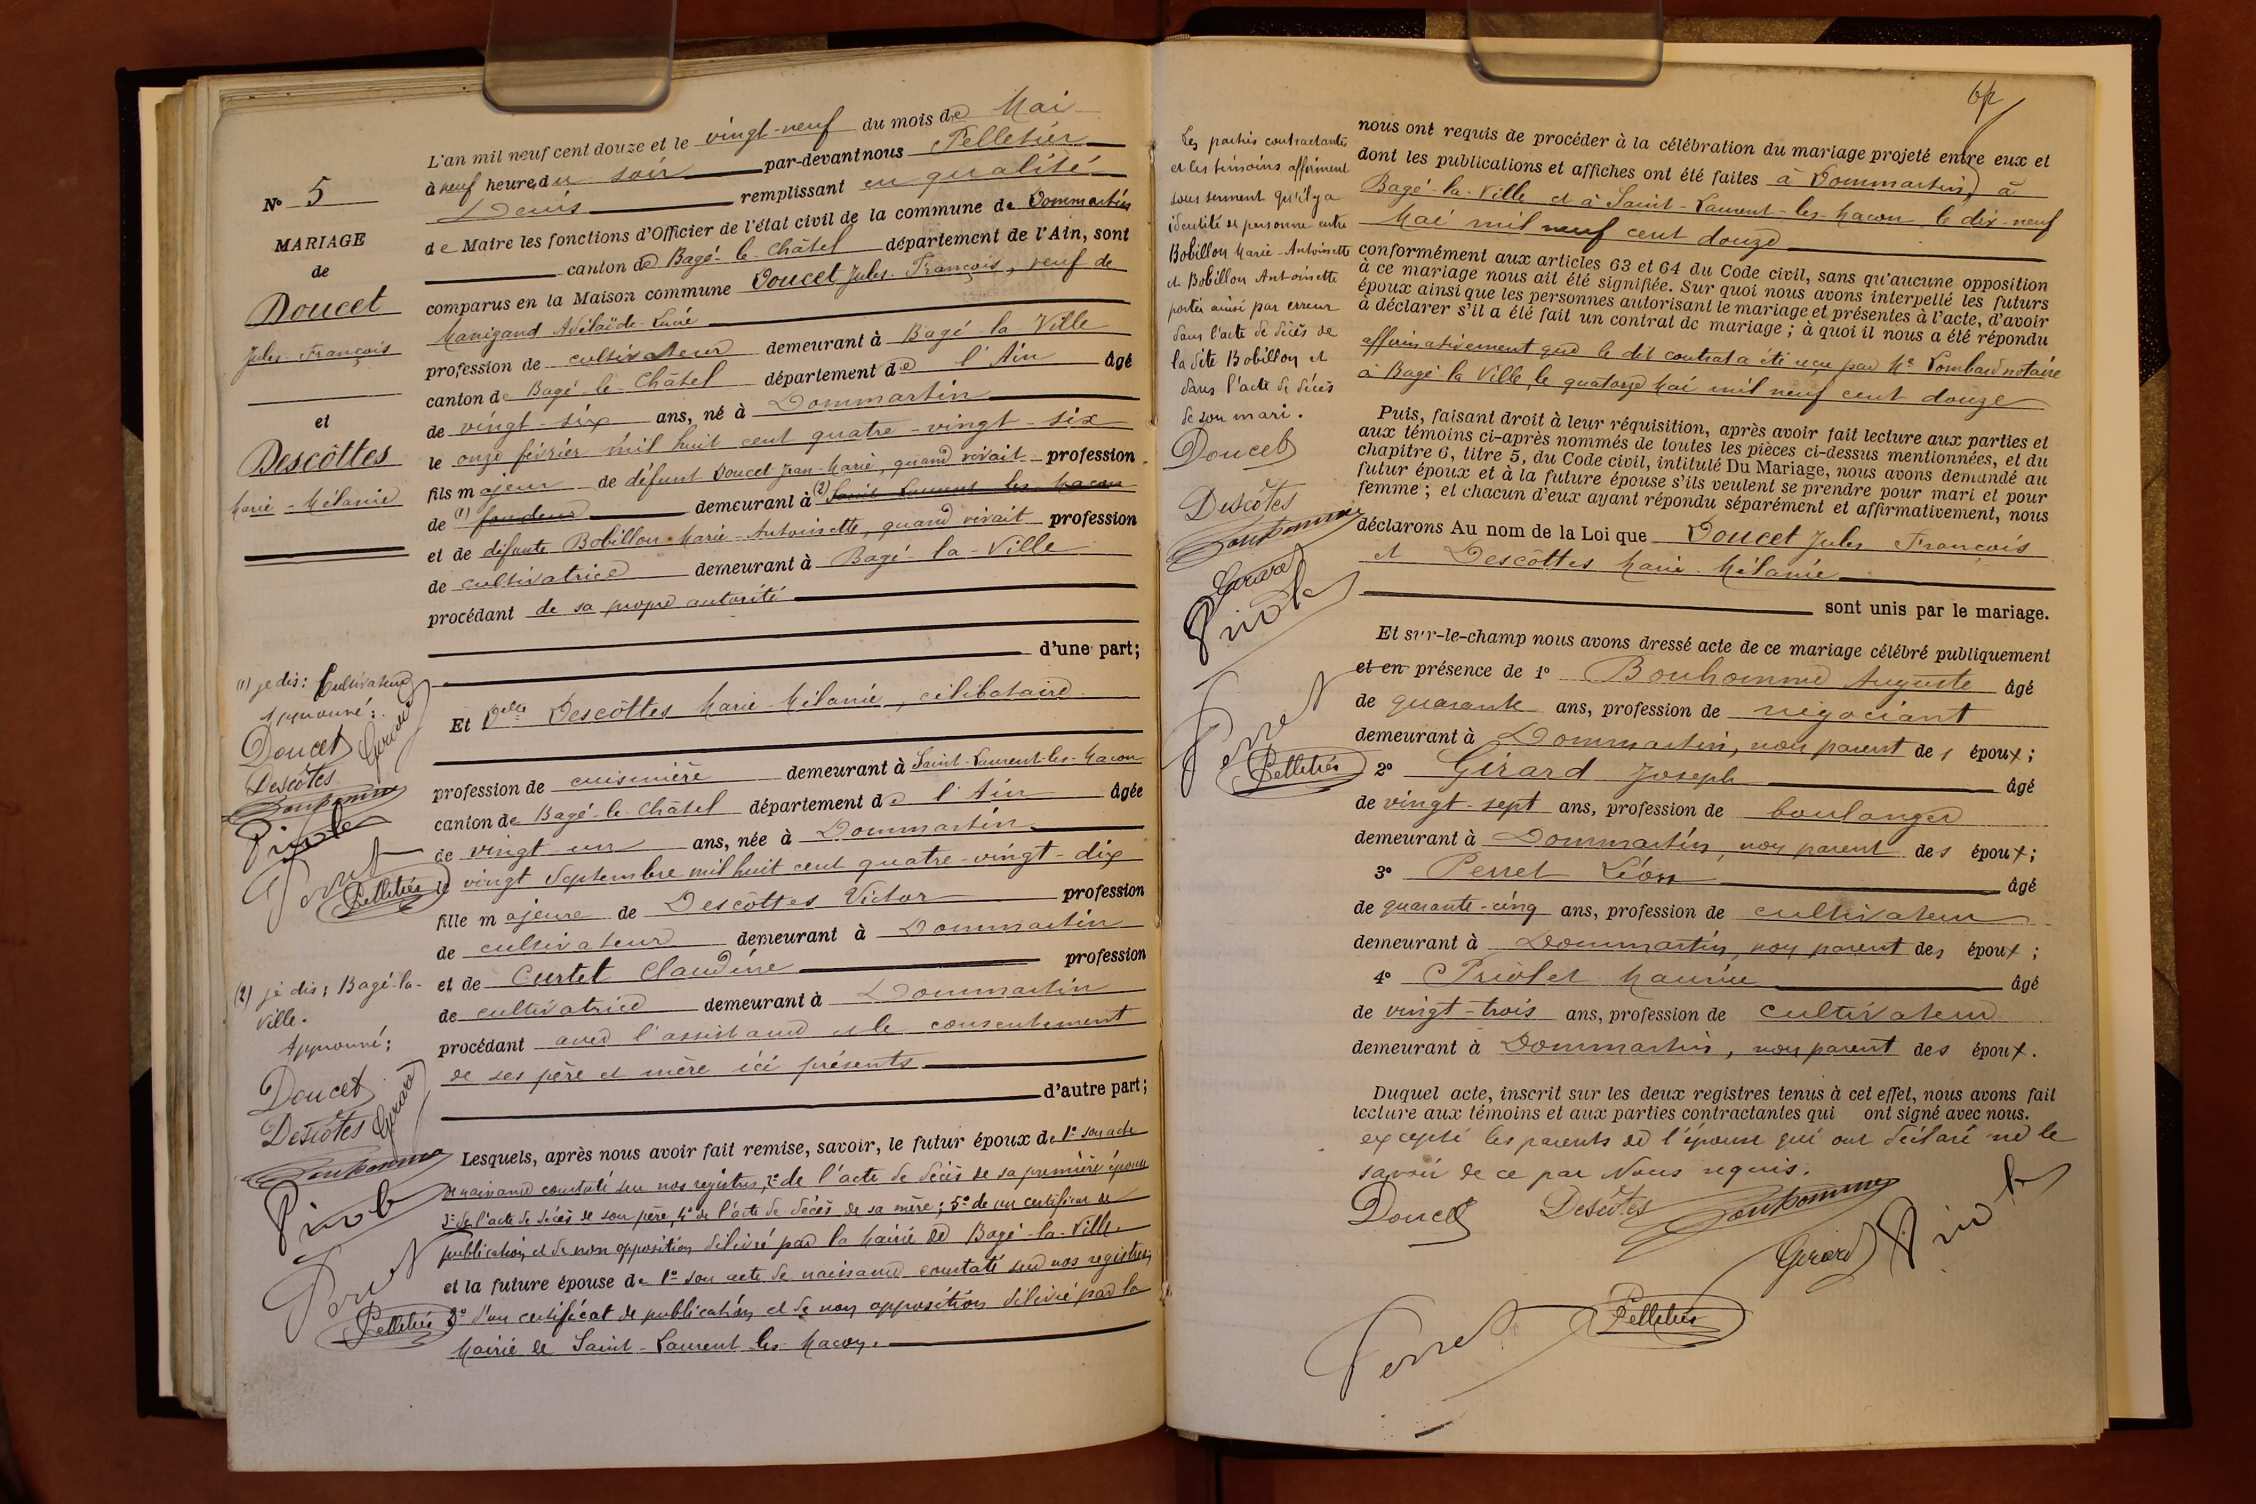 N° 5
MARIAGE
de
Doucet
Jules-François
et
Descôttes
Marie-Mélanie
L'an mil neuf cent douze et le vingt-neuf du mois de Mai
à neuf heures du soir par-devant nous Pelletier
Denis remplissant en qualité
de Maire les fonctions d'Officier de l'état civil de la commune de Dommartin
canton de Bagé-le-Châtel département de l'Ain, sont
comparus en la Maison commune Doucet Jules-François, veuf de
Manigand Adélaïde-Lucie
profession de cultivateur demeurant à Bagé-la-Ville
canton de Bagé-le-Châtel département de l'Ain âgé
de vingt-six ans, né à Dommartin
le onze février mil huit cent quatre-vingt-six
fils majeur de défunt Doucet Jean-Marie, quand vivait profession
de (1) fondeur demeurant à (2) Saint-Laurent-les-Macon
et de défunte Bobillon Marie-Antoinette, quand vivait profession
de cultivatrice demeurant à Bagé-la-Ville
procédant de sa propre autorité
d'une part;
(1) je dis: Cultivateur
Approuvé:
Doucet Girard
Descôtes
Bouhomme
Priolet
Perret
Pelletier
Et Delle Descôttes Marie-Mélanie, célibataire
profession de cuisinière demeurant à Saint-Laurent-les-Macon
canton de Bagé-le-Châtel département de l'Ain âgée
de vingt un ans, née à Dommartin
le vingt Septembre mil huit cent quatre-vingt-dix
fille majeure de Descôttes Victor profession
de cultivateur demeurant à Dommartin
et de Curtet Claudine profession
de cultivatrice demeurant à Dommartin
procédant avec l'assistance et le consentement
de ses père et mère ici présents
d'autre part;
(2) je dis: Bagé-la-
Ville.
Approuvé:
Doucet
Descôtes Girard
Bouhomme
Priolet
Perret
Pelletier
Lesquels, après nous avoir fait remise, savoir, le futur époux de 1° son acte
de naissance constaté sur nos registres, 2° de l'acte de décès de sa première épouse
3° de l'acte de décès de son père, 4° de l'acte de décès de sa mère; 5° de un certificat de
publication et de non opposition délivré par la Mairie de Bagé-la-Ville.
et la future épouse de 1° son acte de naissance constaté sur nos registres,
2° d'un certificat de publication et de non opposition délivré par la
Mairie de Saint-Laurent-les-Macon.
Les parties contractantes
et les témoins affirment
sous serment qu'il y a
identité de personne entre
Bobillon Marie-Antoinette
et Bobillon Antoinette
portée ainsi par erreur
dans l'acte de décès de
la dite Bobillon et
dans l'acte de décès
de son mari.
Doucet
Descôtes
Bouhomme
Girard
Priolet
Perret
Pelletier
nous ont requis de procéder à la célébration du mariage projeté entre eux et
dont les publications et affiches ont été faites à Dommartin, à
Bagé-la-Ville et à Saint-Laurent-les-Macon le dix-neuf
Mai mil neuf cent douze
conformément aux articles 63 et 64 du Code civil, sans qu'aucune opposition
à ce mariage nous ait été signifiée. Sur quoi nous avons interpellé les futurs
époux ainsi que les personnes autorisant le mariage et présentes à l'acte, d'avoir
à déclarer s'il a été fait un contrat de mariage ; à quoi il nous a été répondu
affirmativement que le dit contrat a été reçu par Me Lombard notaire
à Bagé la Ville, le quatorze Mai mil neuf cent douze
Puis, faisant droit à leur réquisition, après avoir fait lecture aux parties et
aux témoins ci-après nommés de toutes les pièces ci-dessus mentionnées, et du
chapitre 6, titre 5, du Code civil, intitulé Du Mariage, nous avons demandé au
futur époux et à la future épouse s'ils veulent se prendre pour mari et pour
femme ; et chacun d'eux ayant répondu séparément et affirmativement, nous
déclarons Au nom de la Loi que Doucet Jules François
et Descôttes Marie-Mélanie
sont unis par le mariage.
Et sur-le-champ nous avons dressé acte de ce mariage célébré publiquement
et en présence de 1° Bouhomme Auguste âgé
de quarante ans, profession de négociant
demeurant à Dommartin, non parent des époux ;
2° Girard Joseph âgé
de vingt-sept ans, profession de boulanger
demeurant à Dommartin, non parent des époux ;
3° Perret Léon âgé
de quarante-cinq ans, profession de cultivateur
demeurant à Dommartin, non parent des époux ;
4° Priolet Maurice âgé
de vingt-trois ans, profession de cultivateur
demeurant à Dommartin, non parent des époux.
Duquel acte, inscrit sur les deux registres tenus à cet effet, nous avons fait
lecture aux témoins et aux parties contractantes qui ont signé avec nous.
excepté les parents de l'épouse qui ont déclaré ne le
savoir de ce par Nous requis.
Doucet Descôtes Bouhomme
Girard Priolet
Perret Pelletier